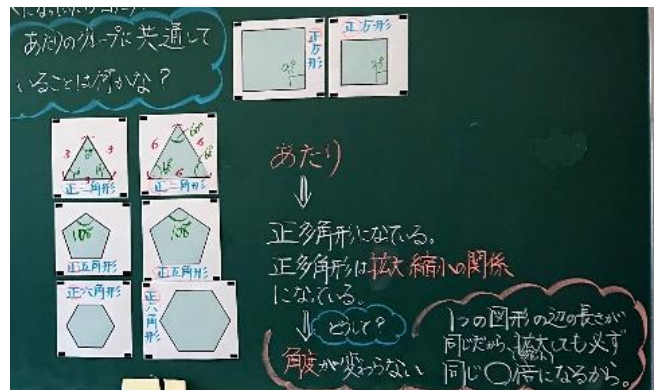 あたりのグループに共通して
いることは何かな?
正方形
90°
正方形
90°
正三角形
3
3
3
60°
正三角形
6
6
6
60°
60°
60°
正五角形
108°
正五角形
108°
正六角形
正六角形
あたり
⇓
正多角形になっている。
正多角形は拡大縮小の関係
になっている。
⇓
どうして?
角度が変わらない
1つの図形の辺の長さが
同じだから、拡大しても必ず
(縮小)
同じ〇倍になるから。